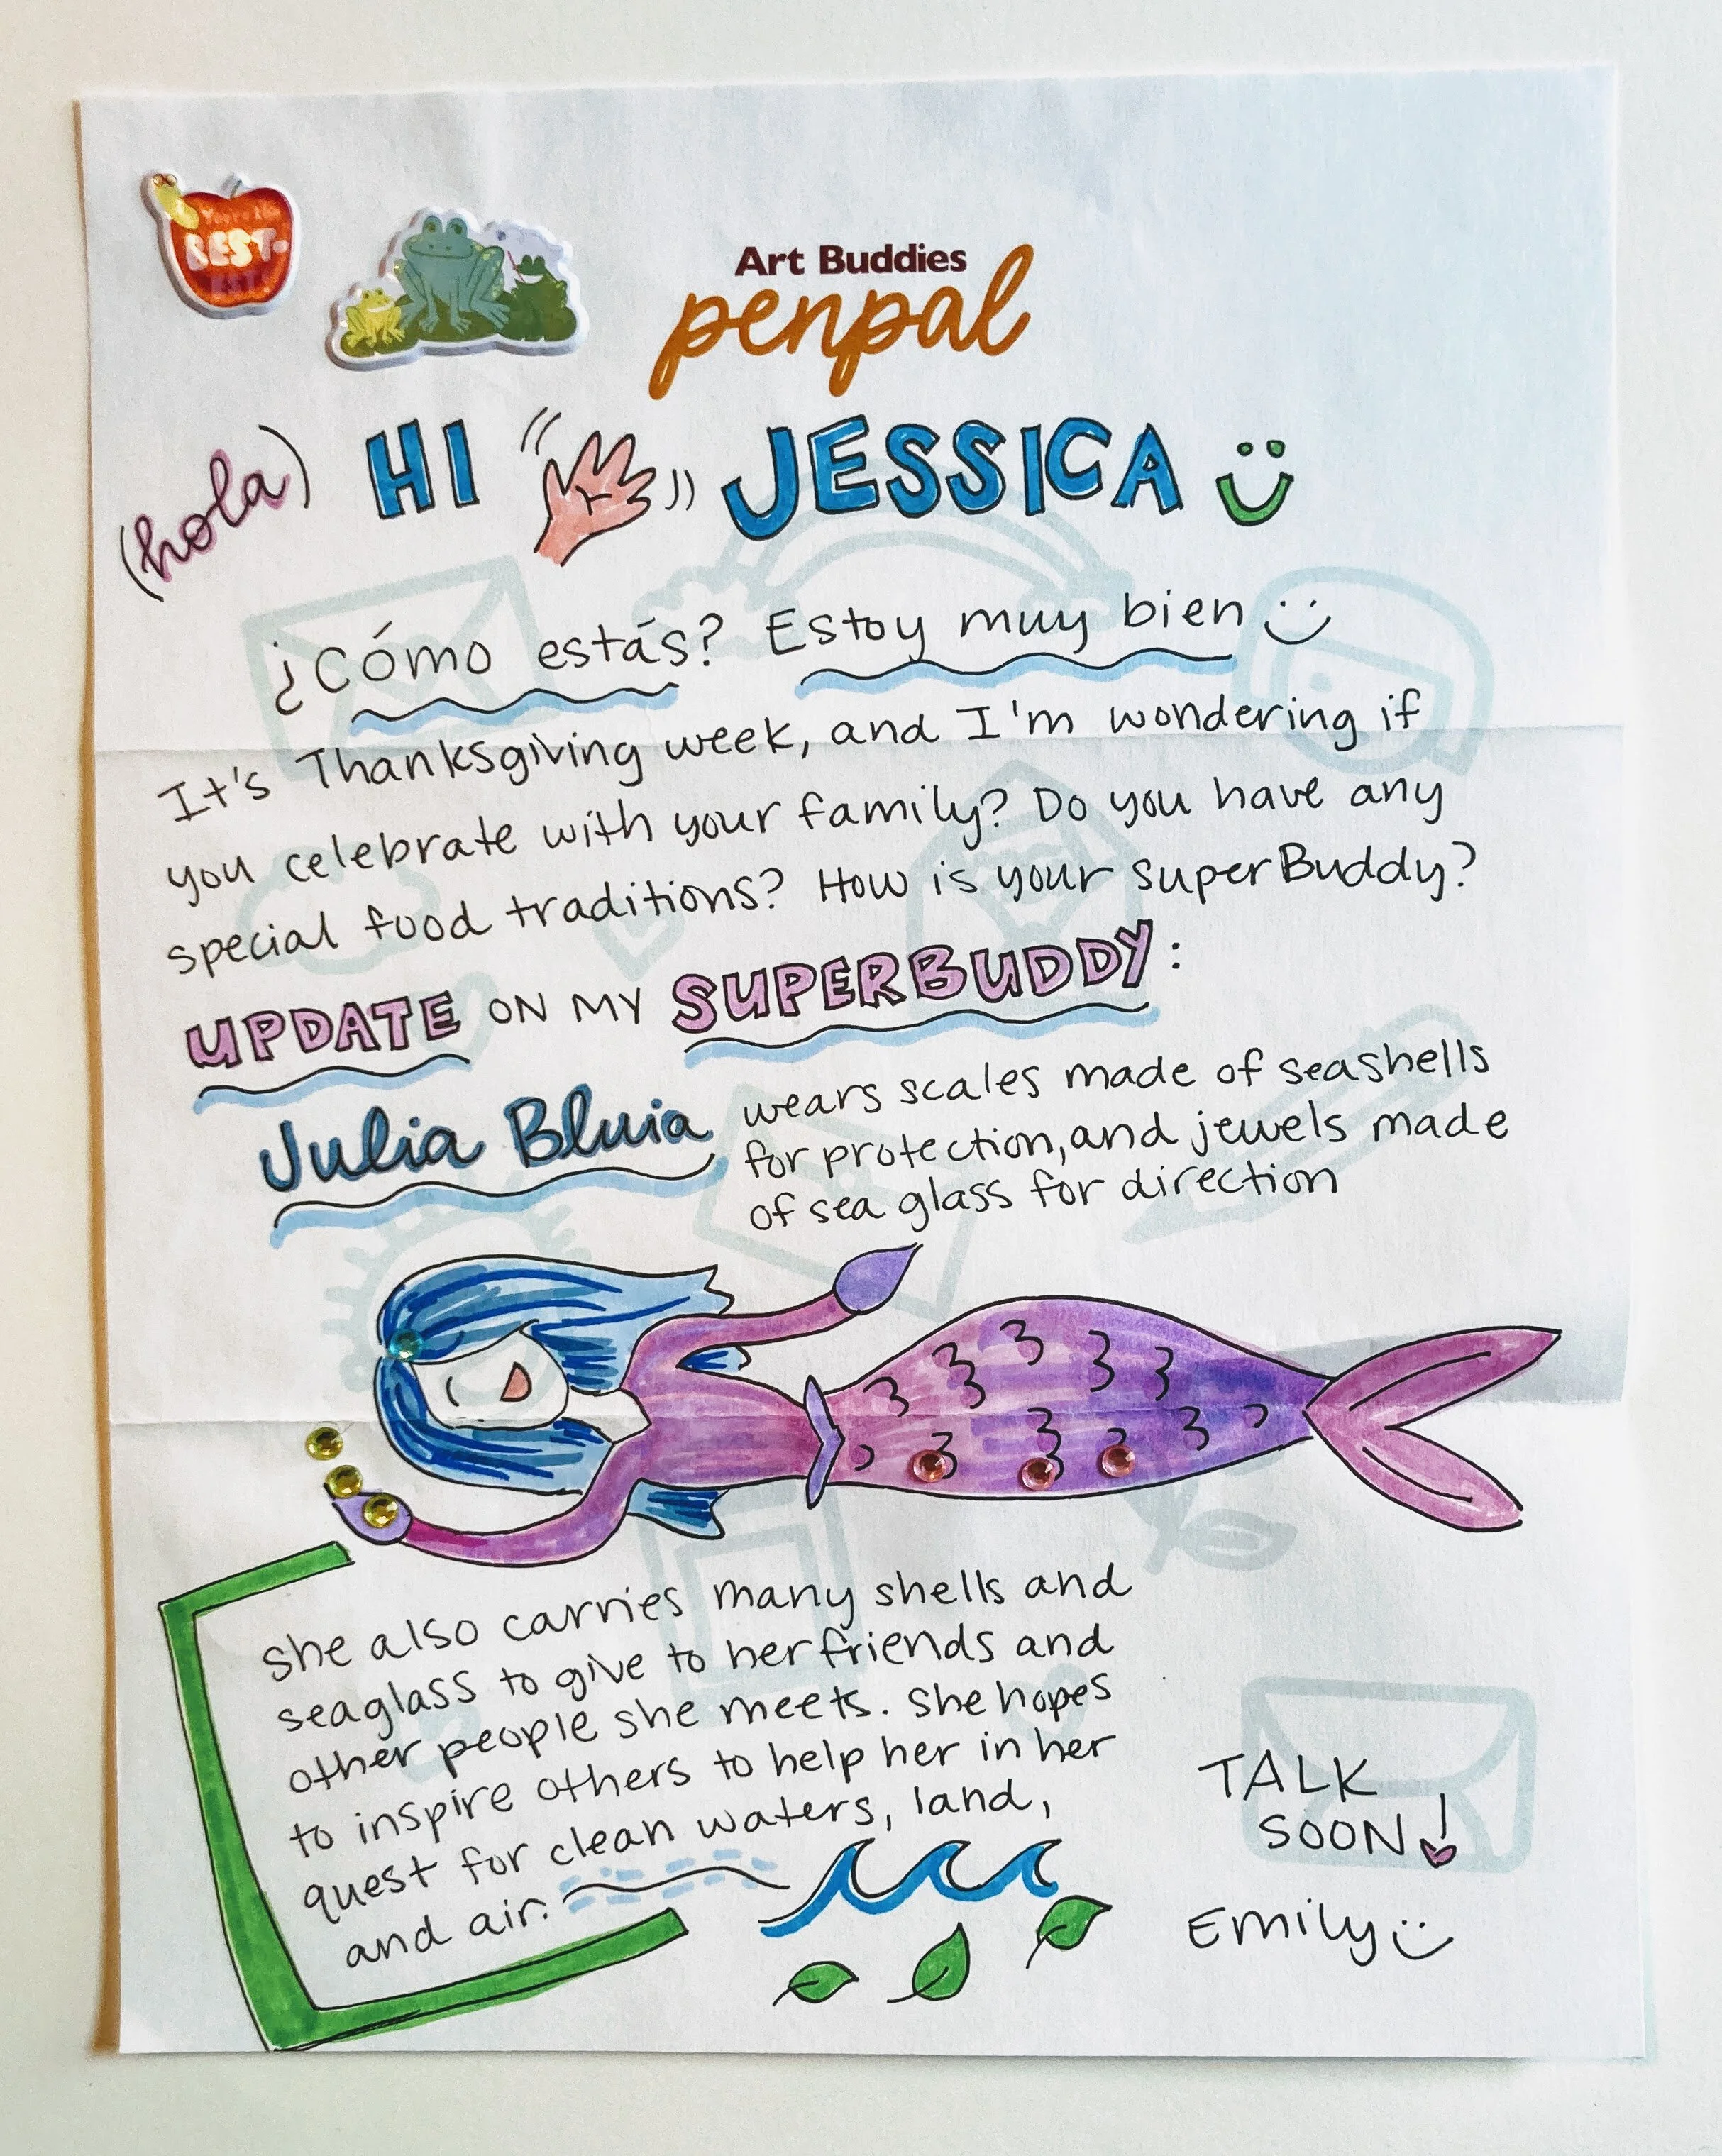 You're the
BEST.
Art Buddies
penpal
(hola) HI JESSICA
¿Cómo estás? Estoy muy bien
It's Thanksgiving week, and I'm wondering if
you celebrate with your family? Do you have any
special food traditions? How is your superBuddy?
UPDATE ON MY SUPERBUDDY:
Julia Bluia
wears scales made of seashells
for protection, and jewels made
of sea glass for direction
she also carries many shells and
seaglass to give to her friends and
other people she meets. She hopes
to inspire others to help her in her
quest for clean waters, land,
and air.
TALK
SOON!
Emily